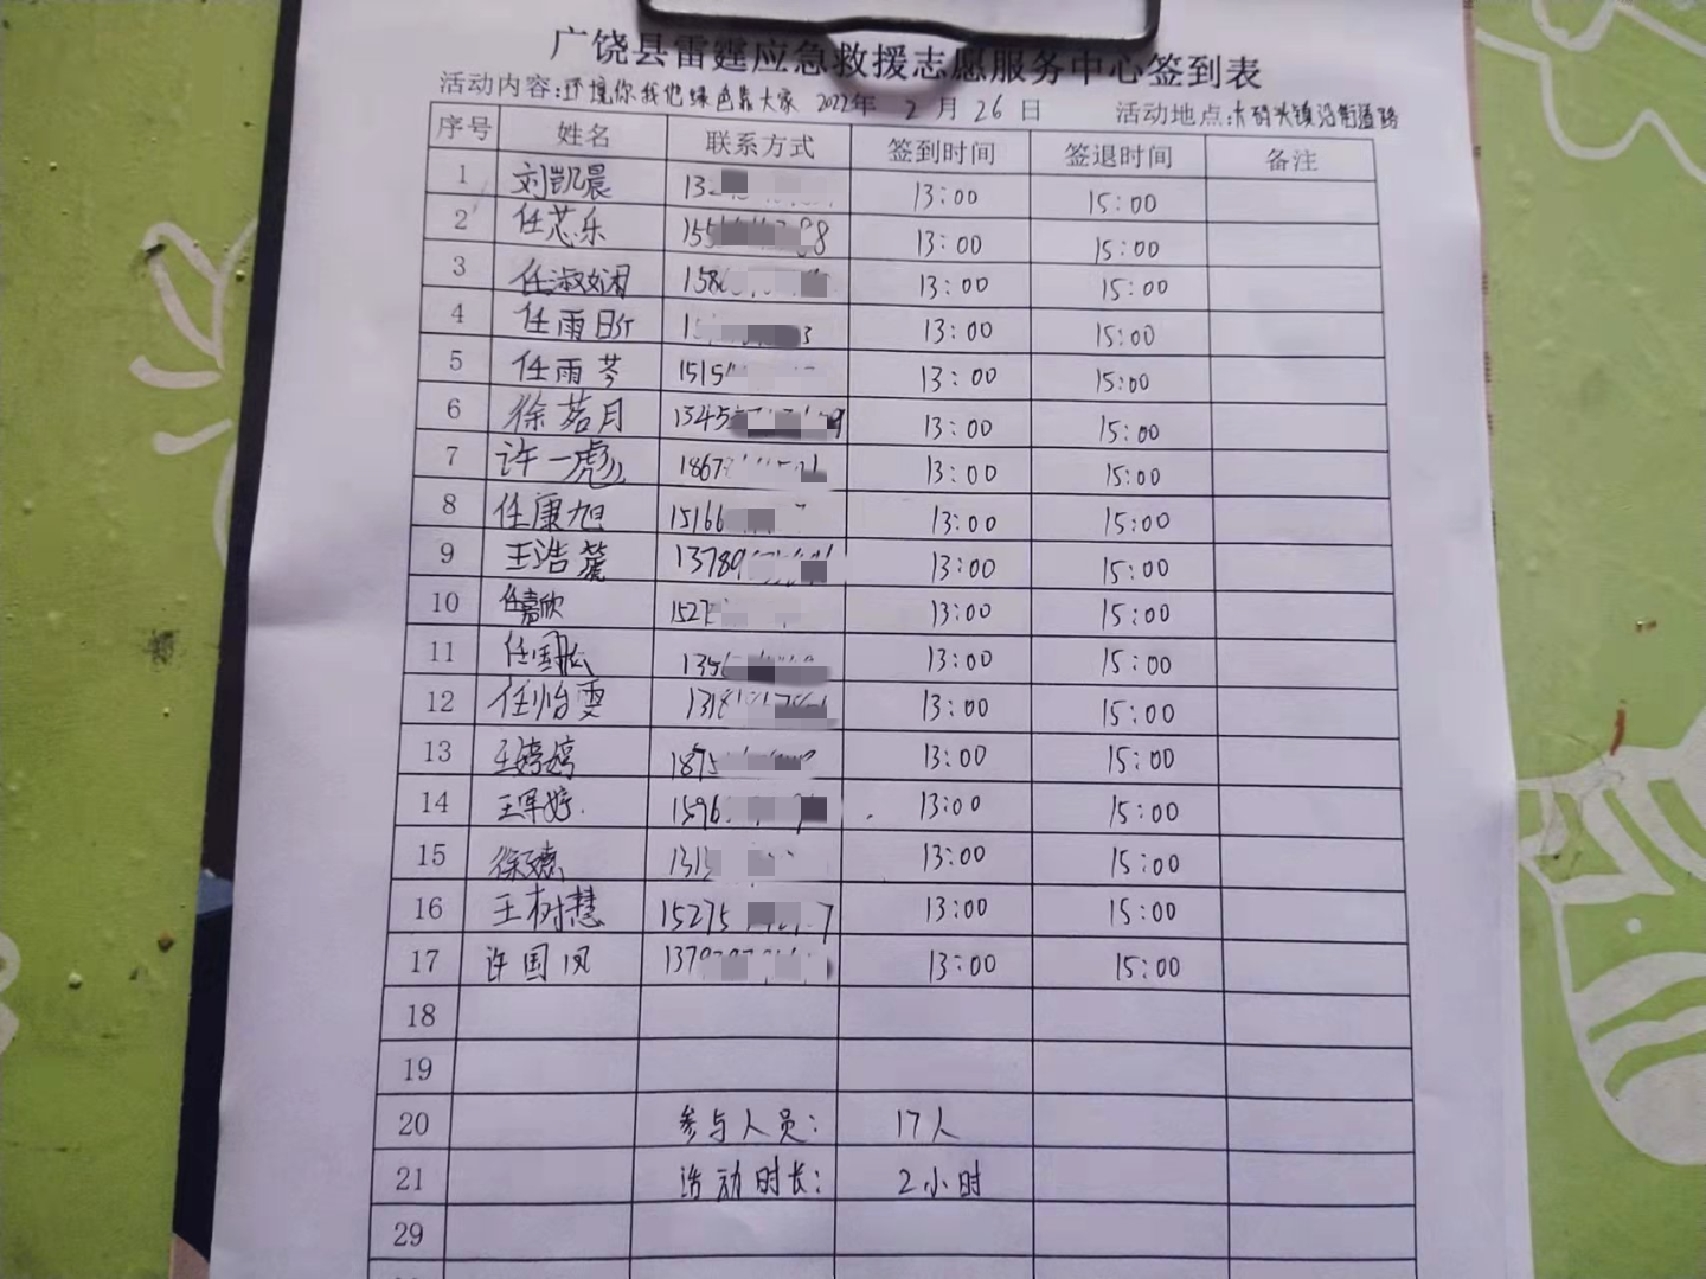 广饶县雷霆应急救援志愿服务中心签到表
活动内容:环境你我他绿色靠大家 2022年 2 月 26 日 活动地点:大码头镇沿街道路
序号 姓名 联系方式 签到时间 签退时间 备注
1 刘凯晨 13 13:00 15:00
2 任芯乐 155 88 13:00 15:00
3 任淑娴 158 13:00 15:00
4 任雨昕 1 3 13:00 15:00
5 任雨芩 1515 13:00 15:00
6 徐若月 1345 9 13:00 15:00
7 许一彪 1867 1 13:00 15:00
8 任康旭 15166 13:00 15:00
9 王浩 13789 13:00 15:00
10 任嘉欣 152 13:00 15:00
11 任国 13 13:00 15:00
12 任怡雯 1318 13:00 15:00
13 王婷婷 1875 13:00 15:00
14 王军婷 1596 13:00 15:00
15 徐 131 13:00 15:00
16 王树慧 15275 7 13:00 15:00
17 许国凤 1370 13:00 15:00
18
19
20 参与人员: 17人
21 活动时长: 2小时
29